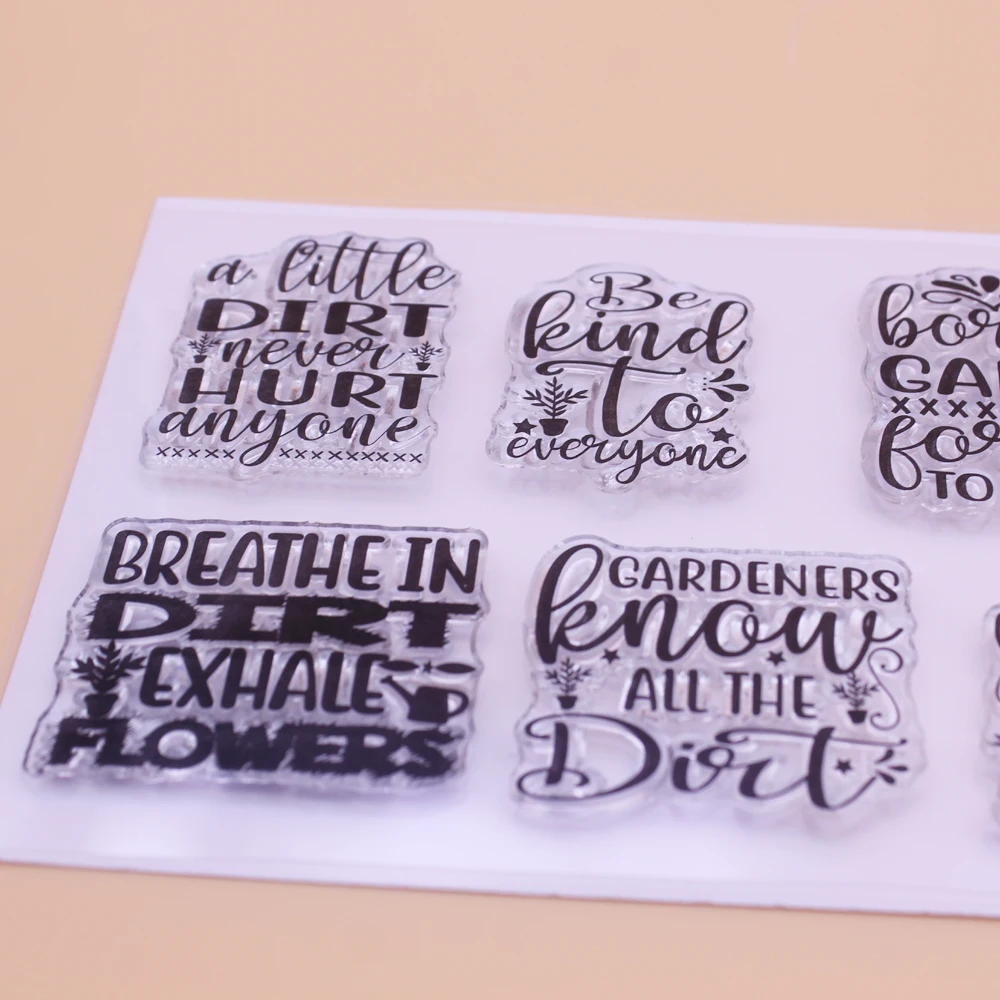 a little
DIRT
never
HURT
anyone
Be
kind
to
everyone
TO
BREATHE IN
DIRT
EXHALE
FLOWERS
GARDENERS
know
ALL THE
Dirt